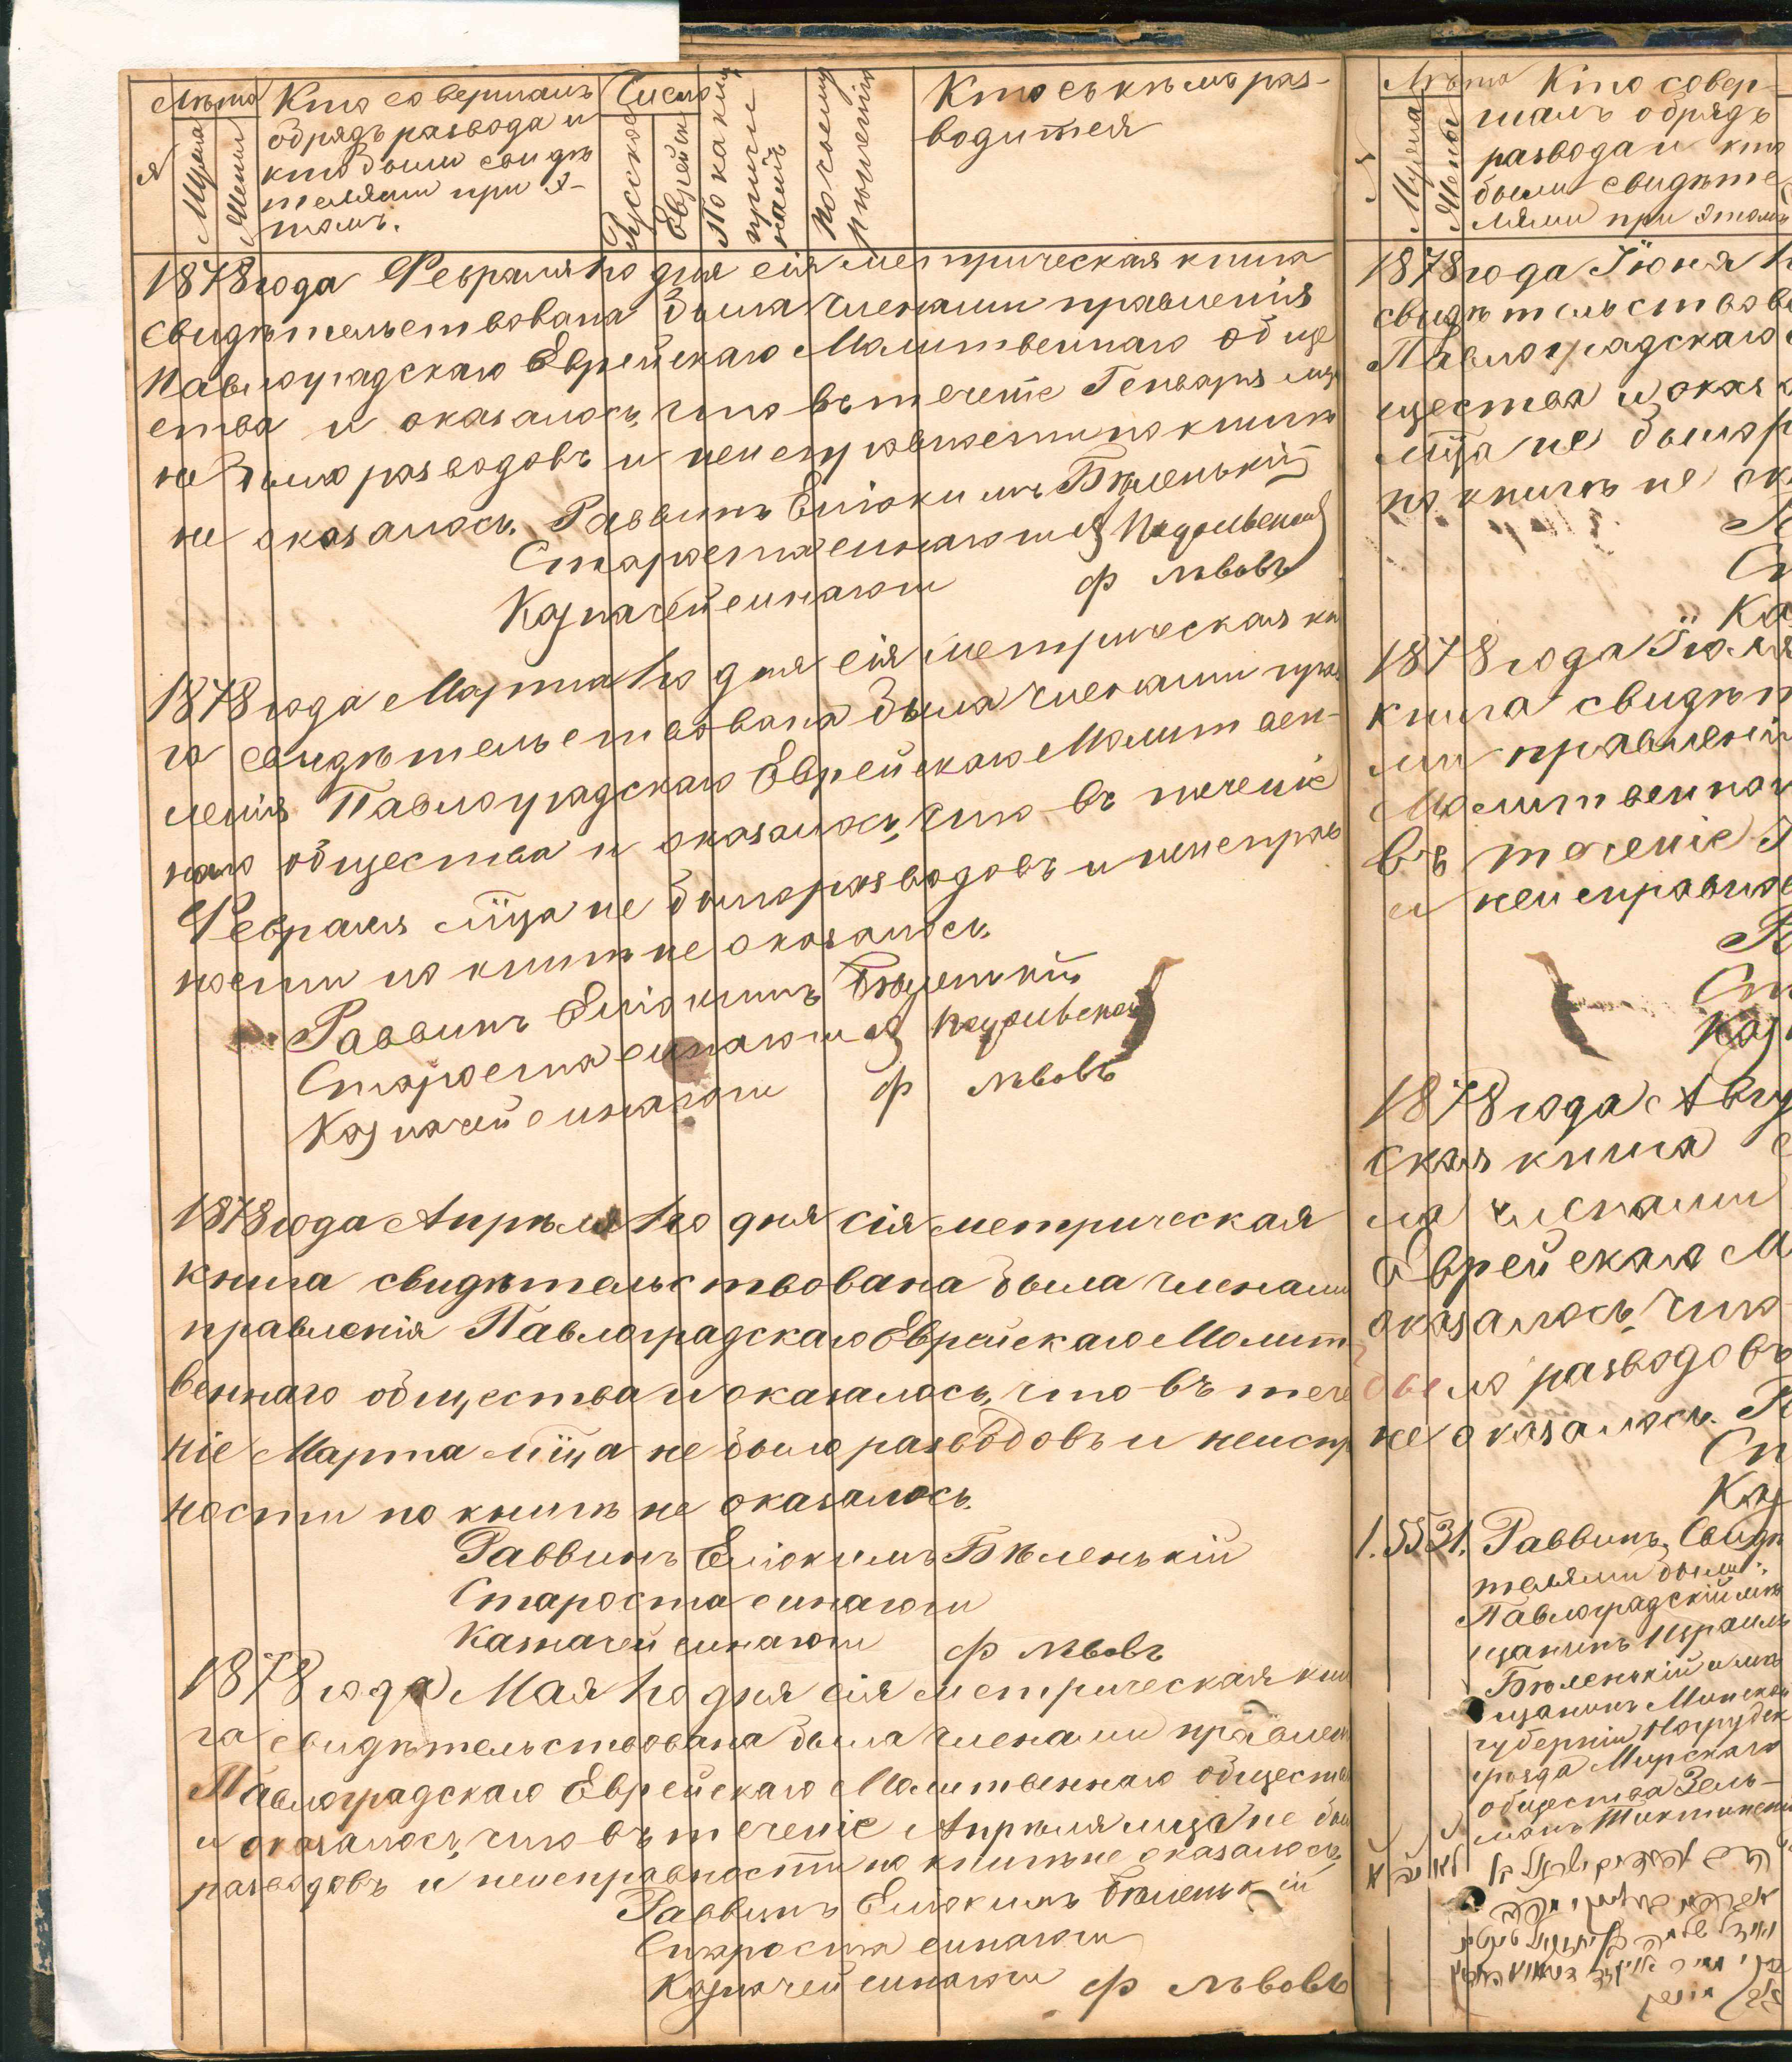 Лѣта
Кто совершалъ
обрядъ развода и
кто были свидѣ
телями при э-
томъ.
Мужа
Жены
Число
Русское
Еврейск
По какимъ
причи
намъ
По чьему
рѣшенію
Кто съ кѣмъ раз-
водится
1878 года Февраля 1го дня сія метрическая книга
свидѣтельствована была членами правленія
Павлоградскаго Еврейскаго Молитвеннаго обще
ства и оказалось, что въ теченіе Генваря мца
не было разводовъ и неисправности по книгѣ
не оказалось. Раввинъ Еліокимъ Бѣленькій
Староста синагоги Я Подольскій
Казначей синагоги Ф Львовъ
1878 года Марта 1го дня сія метрическая кн
га свидѣтельствована была членами прав
ленія Павлоградскаго Еврейскаго Молитвен-
наго общества и оказалось, что въ теченіе
Февраля мца не было разводовъ и неисправ
ности по книгѣ не оказалось.
Раввинъ Еліокимъ Бѣленькій
Староста синагоги Я Подольскій
Казначей синагоги Ф Львовъ
1878 года Апрѣля 1го дня сія метрическая
книга свидѣтельствована была членами
правленія Павлоградскаго Еврейскаго Молит
веннаго общества и оказалось, что въ тече
ніе Марта мца не было разводовъ и неиспр
ности по книгѣ не оказалось.
Раввинъ Еліокимъ Бѣленькій
Староста синагоги
Казначей синагоги Ф Львовъ
1878 года Мая 1го дня сія метрическая кни
га свидѣтельствована была членами правлен
Павлоградскаго Еврейскаго Молитвеннаго общества
и оказалось, что въ теченіе Апрѣля мца не был
разводовъ и неисправности по книгѣ не оказалось.
Раввинъ Еліокимъ Бѣленькій
Староста синагоги
Казначей синагоги Ф Львовъ
Лѣта
Мужа
Жены
Кто совер-
шалъ обрядъ
развода и кто
были свидѣте
лями при этомъ
1878 года Іюня 1
свидѣтельствов
Павлоградскаго
щества и оказ
мца не было р
по книгѣ не ок
Ка
1878 года Іюля
книга свидѣт
ми правленія
Молитвеннаг
въ теченіе
и неисправно
Р
Ст
Каз
1878 года Авгу
ская книга с
ла членами
Еврейскаго М
оказалось, что
было разводовъ
не оказалось. Р
Ст
Каз
1. 55 31. Раввинъ, Свидѣ
телями были:
Павлоградскій мѣ
щанинъ Израиль
Бѣленькій и мѣ
щанинъ Минской
губерніи Ногрудск
уѣзда Мирскаго
общества Зель-
манъ Тиктинскі